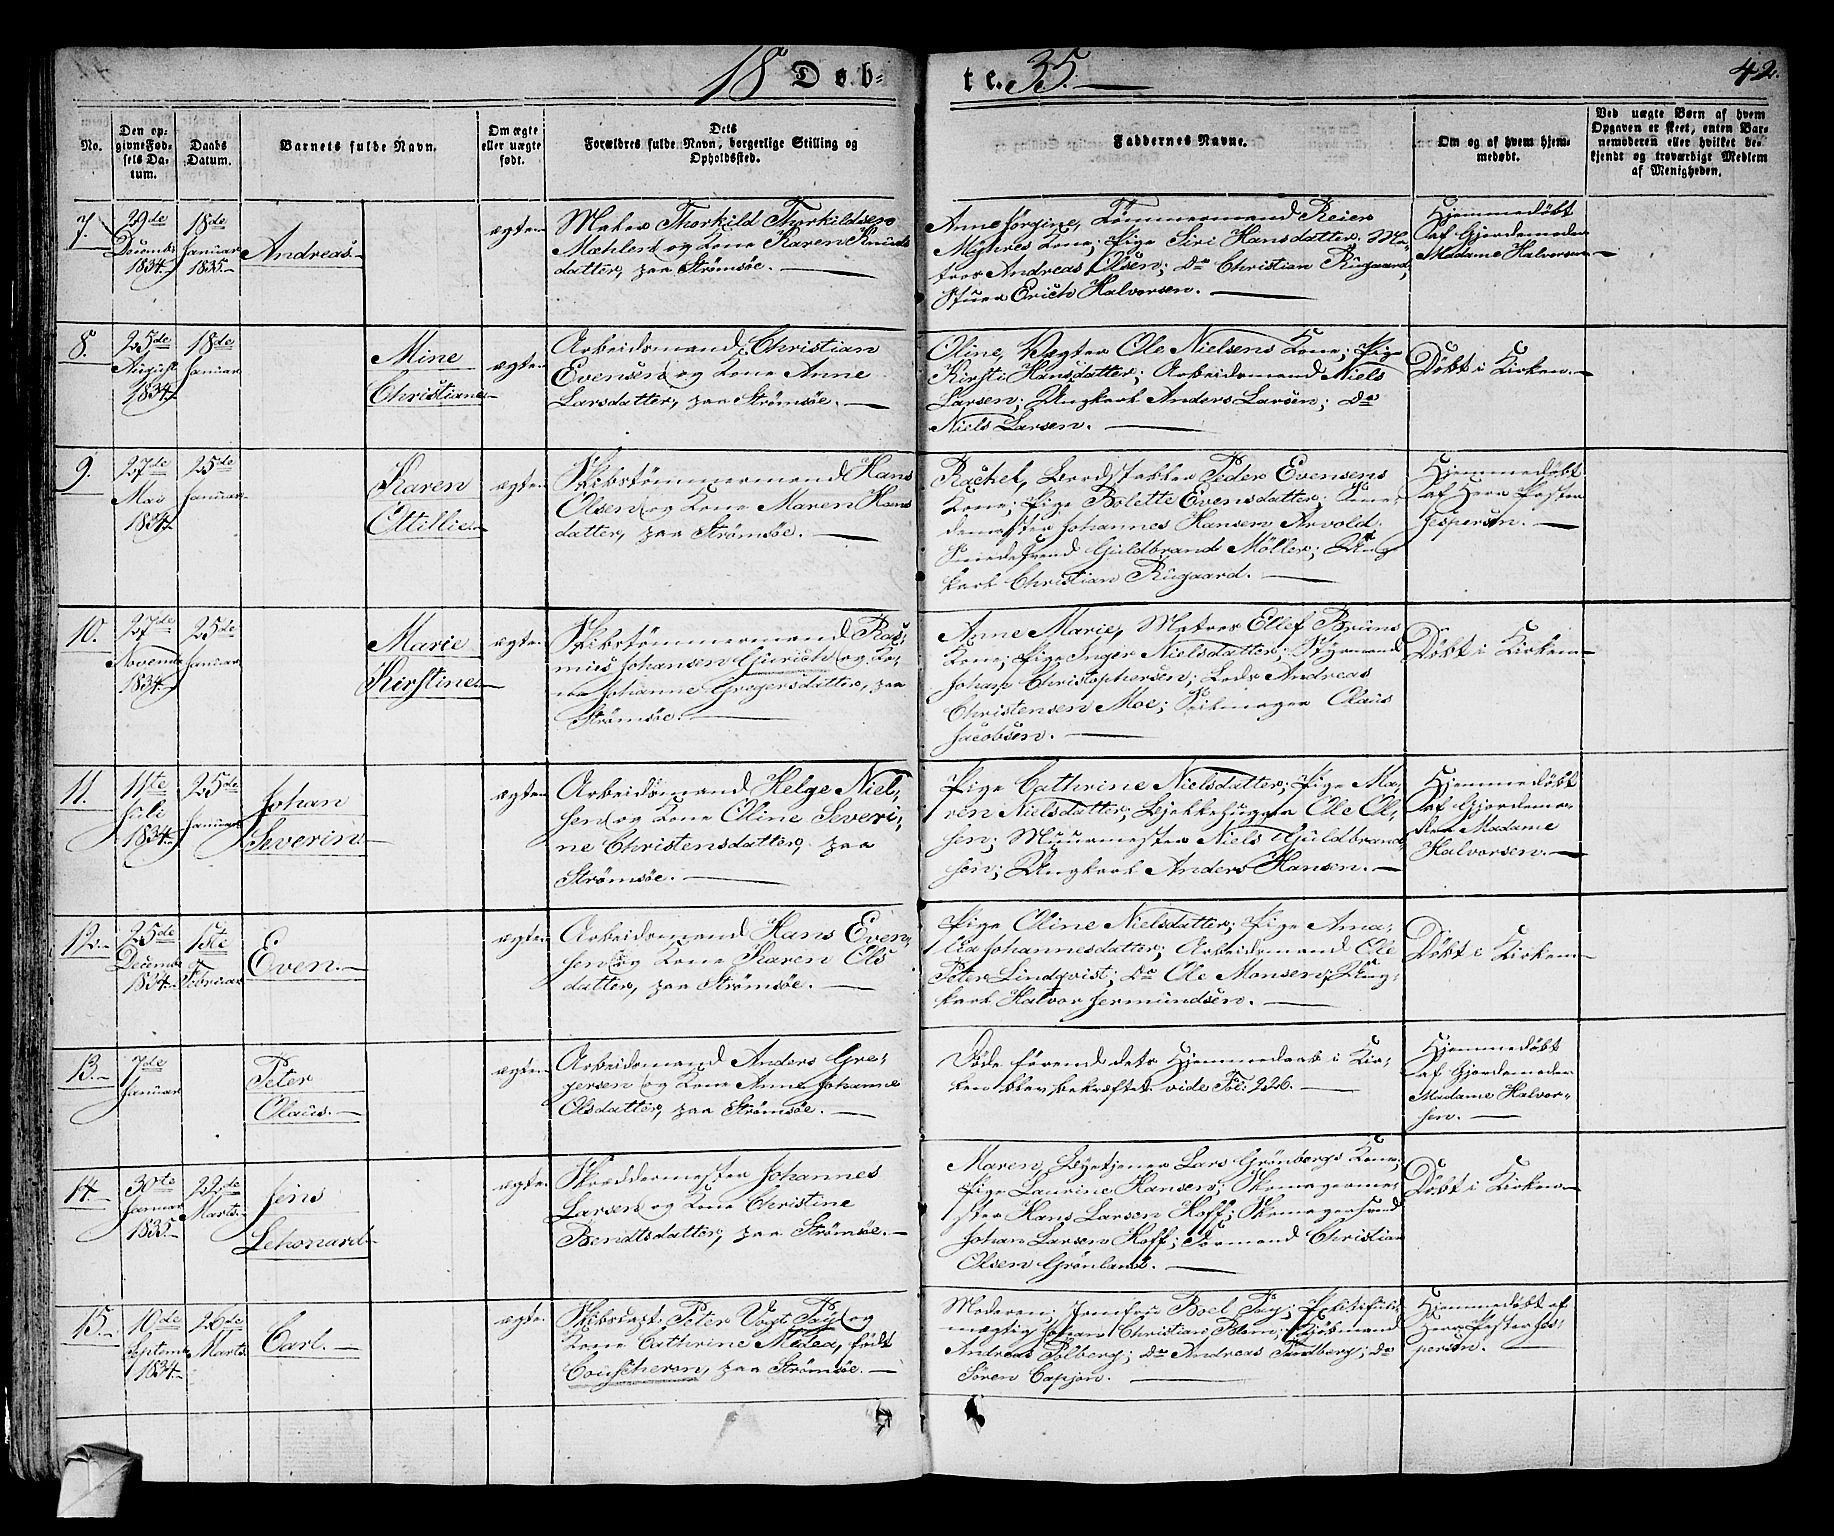 18 Døb-
te. 35.
42.
No.
Den op-
givne Fød-
sels Da-
tum.
Daabs
Datum.
Barnets fulde Navn.
Om ægte
eller uægte
født.
Dets
Forældres fulde Navn, borgerlige Stilling og
Opholdssted.
Faddernes Navne.
Om og af hvem hjem-
medøbt.
Ved uægte Børn af hvem
Opgaven er skeet, enten Bar-
nemoderen eller hvilket be-
kjendt og troværdigt Medlem
af Menigheden.
7.
29de
Decembr
1834.
18de
Januar
1835.
Andreas.
ægte.
Thorkild Thorkildsen
Mæhlen og Kone Karen Knuds
datter, paa Strømsøe.
Anne Jørgine, Tømmermand Reier
Myhres Kone; Pige Siri Hansdatter; Ma-
tros Andreas Olsen; do Christian Rugaard;
Stuer Erich Halvorsen.
Hjemmedøbt
af Gjordemoder
Madame Halvorsen.
8.
25de
August
1834.
18de
Januar
Mine
Christiane.
ægte.
Arbeidsmand Christian
Evensen og Kone Anne
Larsdatter, paa Strømsøe.
Oline, Vægter Ole Nielsens Kone; Pige
Kirsti Hansdatter; Arbeidsmand Niels
Larsen; Ungkarl Anders Larsen; do
Niels Larsen.
Døbt i Kirken.
9.
27de
Mai
1834.
25de
Januar
Karen
Ottillie.
ægte.
Skibstømmermand Hans
Olsen og Kone Maren Hans
datter, paa Strømsøe.
Rachel, Bordstabler Peder Evensens
Kone; Pige Bolette Evensdatter;
Johannes Hansen Arvold;
Smedesvend Guldbrand Møller; Ung
karl Christian Rugaard.
Hjemmedøbt
af Herr Pastor
Jespersen.
10.
27de
Novembr
1834.
25de
Januar
Marie
Kirstine.
ægte.
Skibstømmermand Ras-
mus Johansen Gjurich og Ko-
ne Johanne Gregersdatter, paa
Strømsøe.
Anne Marie, Matros Ellef Bruns
Kone; Pige Inger Nielsdatter; Styrmand
Johan Christophersen; Lods Andreas
Christensen Moe; Seilmager Olaus
Jacobsen.
Døbt i Kirken
11.
11te
Juli
1834.
25de
Januar
Johan
Severin.
ægte.
Arbeidsmand Helge Niel-
sen og Kone Oline Severi-
ne Christensdatter, paa
Strømsøe.
Pige Cathrine Nielsdatter; Pige Ma-
ren Nielsdatter; Bjelkehugger Ole Ol-
sen; Muurmester Niels Guldbrand-
sen; Ungkarl Anders Hansen.
Hjemmedøbt
af Gjordemo-
der Madame
Halvorsen.
12.
25de
Decembr
1834.
1ste
Februar
Even.
ægte.
Arbeidsmand Hans Even-
sen og Kone Karen Ols
datter, paa Strømsøe.
Pige Oline Nielsdatter; Pige Ama-
lia Johannesdatter; Arbeidsmand Ole
Peter Lindqvist; do Ole Monsen; Ung-
karl Halvor Jermundsen.
Døbt i Kirken
13.
7de
Januar
Peter
Olaus.
ægte.
Arbeidsmand Anders Gre-
gersen og Kone Anne Johanne
Olsdatter, paa Strømsøe.
Døde førend dets Hjemmedaab i Kir-
ken blev bekræftet vide Fol: 226.
Hjemmedøbt
af Gjordemoder
Madame Halvor-
sen.
14.
30te
Januar
1835
22de
Marts
Jens
Lehonard
ægte.
Skræddermester Johannes
Larsen og Kone Christine
Bendtsdatter, paa Strømsøe.
Maren, Byetjener Lars Grønbergs Kone;
Pige Laurine Hansen; Skomagerme-
ster Hans Larsen Hoff; Skomagersvend
Johan Larsen Hoff; Formand Christian
Olsen Grønland.
Døbt i Kirken
15.
10de
Septembr
1834.
26de
Marts
Carl.
ægte.
Skibscapt: Peter Vogt Fay og
Kone Cathrine Medea, født
Coucheron, paa Strømsøe.
Moderen; Jomfru Boel Fay;
mægtig Johan Christian Blom; Kjøbmand
Andreas Solberg; do Andreas Sandberg; do
Søren Capjon.
Hjemmedøbt af
Herr Pastor Jes-
persen.